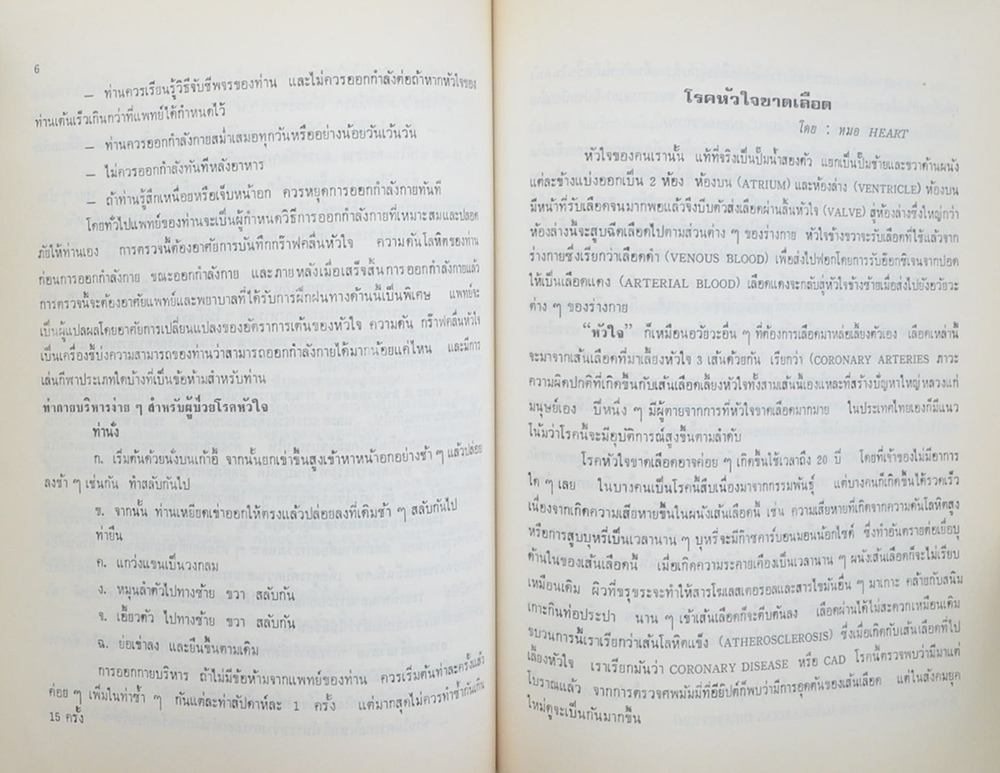 6
— ท่านควรเรียนรู้วิธีจับชีพจรของท่าน และไม่ควรออกกำลังต่อถ้าหากหัวใจของ
ท่านเต้นเร็วเกินกว่าที่แพทย์ได้กำหนดไว้
— ท่านควรออกกำลังกายสม่ำเสมอทุกวันหรืออย่างน้อยวันเว้นวัน
— ไม่ควรออกกำลังทันทีหลังอาหาร
— ถ้าท่านรู้สึกเหนื่อยหรือเจ็บหน้าอก ควรหยุดการออกกำลังกายทันที
โดยทั่วไปแพทย์ของท่านจะเป็นผู้กำหนดวิธีการออกกำลังกายที่เหมาะสมและปลอด
ภัยให้ท่านเอง การตรวจนี้ต้องอาศัยการบันทึกกร๊าฟคลื่นหัวใจ ความดันโลหิตของท่าน
ก่อนการออกกำลังกาย ขณะออกกำลังกาย และภายหลังเมื่อเสร็จสิ้นการออกกำลังกายแล้ว
การตรวจนี้จะต้องอาศัยแพทย์และพยาบาลที่ได้รับการฝึกฝนทางด้านนี้เป็นพิเศษ แพทย์จะ
เป็นผู้แปลผลโดยอาศัยการเปลี่ยนแปลงของอัตราการเต้นของหัวใจ ความดัน กร๊าฟคลื่นหัวใจ
เป็นเครื่องชี้บ่งความสามารถของท่านว่าสามารถออกกำลังกายได้มากน้อยแค่ไหน และมีการ
เล่นกีฬาประเภทใดบ้างที่เป็นข้อห้ามสำหรับท่าน
ท่ากายบริหารง่าย ๆ สำหรับผู้ป่วยโรคหัวใจ
ท่านั่ง
ก. เริ่มต้นด้วยนั่งบนเก้าอี้ จากนั้นยกเข่าขึ้นสูงเข้าหาหน้าอกอย่างช้า ๆ แล้วปล่อย
ลงช้า ๆ เช่นกัน ทำสลับกันไป
ข. จากนั้น ท่านเหยียดเข่าออกให้ตรงแล้วปล่อยลงที่เดิมช้า ๆ สลับกันไป
ท่ายืน
ค. แกว่งแขนเป็นวงกลม
ง. หมุนลำตัวไปทางซ้าย ขวา สลับกัน
จ. เอี้ยวตัว ไปทางซ้าย ขวา สลับกัน
ฉ. ย่อเข่าลง และยืนขึ้นตามเดิม
การออกกายบริหาร ถ้าไม่มีข้อห้ามจากแพทย์ของท่าน ควรเริ่มต้นท่าละครั้งแล้ว
ค่อย ๆ เพิ่มในท่าซ้ำ ๆ กันแต่ละท่าสัปดาห์ละ 1 ครั้ง แต่มากสุดไม่ควรทำซ้ำกันเกิน
15 ครั้ง
โรคหัวใจขาดเลือด
โดย : หมอ HEART
หัวใจของคนเรานั้น แท้ที่จริงเป็นปั๊มน้ำสองตัว แยกเป็นปั๊มซ้ายและขวาด้านผนัง
แต่ละข้างแบ่งออกเป็น 2 ห้อง ห้องบน (ATRIUM) และห้องล่าง (VENTRICLE) ห้องบน
มีหน้าที่รับเลือดจนมากพอแล้วจึงบีบตัวส่งเลือดผ่านลิ้นหัวใจ (VALVE) สู่ห้องล่างซึ่งใหญ่กว่า
ห้องล่างนี้จะสูบฉีดเลือดไปตามส่วนต่าง ๆ ของร่างกาย หัวใจข้างขวาจะรับเลือดที่ใช้แล้วจาก
ร่างกายซึ่งเรียกว่าเลือดดำ (VENOUS BLOOD) เพื่อส่งไปฟอกโดยการรับอ๊อกซิเจนจากปอด
ให้เป็นเลือดแดง (ARTERIAL BLOOD) เลือดแดงจะกลับสู่หัวใจข้างซ้ายเมื่อส่งไปยังอวัยวะ
ต่าง ๆ ของร่างกาย
“หัวใจ” ก็เหมือนอวัยวะอื่น ๆ ที่ต้องการเลือดมาหล่อเลี้ยงตัวเอง เลือดเหล่านี้
จะมาจากเส้นเลือดที่มาเลี้ยงหัวใจ 3 เส้นด้วยกัน เรียกว่า (CORONARY ARTERIES ภาวะ
ความผิดปกติที่เกิดขึ้นกับเส้นเลือดเลี้ยงหัวใจทั้งสามเส้นนี้เองแหละที่สร้างปัญหาใหญ่หลวงแก่
มนุษย์เอง ปีหนึ่ง ๆ มีผู้ตายจากการที่หัวใจขาดเลือดมากมาย ในประเทศไทยเองก็มีแนว
โน้มว่าโรคนี้จะมีอุบัติการณ์สูงขึ้นตามลำดับ
โรคหัวใจขาดเลือดอาจค่อย ๆ เกิดขึ้นใช้เวลาถึง 20 ปี โดยที่เจ้าของไม่มีอาการ
ใด ๆ เลย ในบางคนเป็นโรคนี้สืบเนื่องมาจากกรรมพันธุ์ แต่บางคนก็เกิดขึ้นได้รวดเร็ว
เนื่องจากเกิดความเสียหายขึ้นในผนังเส้นเลือดนี้ เช่น ความเสียหายที่เกิดจากความดันโลหิตสูง
หรือการสูบบุหรี่เป็นเวลานาน ๆ บุหรี่จะมีก๊าซคาร์บอนมอนน้อกไซด์ ซึ่งทำอันตรายต่อเยื่อบุ
ด้านในของเส้นเลือดนี้ เมื่อเกิดความระคายเคืองเป็นเวลานาน ๆ ผนังเส้นเลือดก็จะไม่เรียบ
เหมือนเดิม ผิวที่ขรุขระจะทำให้สารโฆเลสเตอรอลและสารไขมันอื่น ๆ มาเกาะ คล้ายกับสนิม
เกาะกินท่อประปา นาน ๆ เข้าเส้นเลือดก็จะตีบตันลง เลือดผ่านได้ไม่สะดวกเหมือนเดิม
ขบวนการนี้เราเรียกว่าเส้นโลหิตแข็ง (ATHEROSCLEROSIS) ซึ่งเมื่อเกิดกับเส้นเลือดที่ไป
เลี้ยงหัวใจ เราเรียกมันว่า CORONARY DISEASE หรือ CAD โรคนี้ตรวจพบว่ามีมาแต่
โบราณแล้ว จากการตรวจศพมัมมี่ที่อียิปต์ก็พบว่ามีการอุดตันของเส้นเลือด แต่ในสังคมยุค
ใหม่ดูจะเป็นกันมากขึ้น